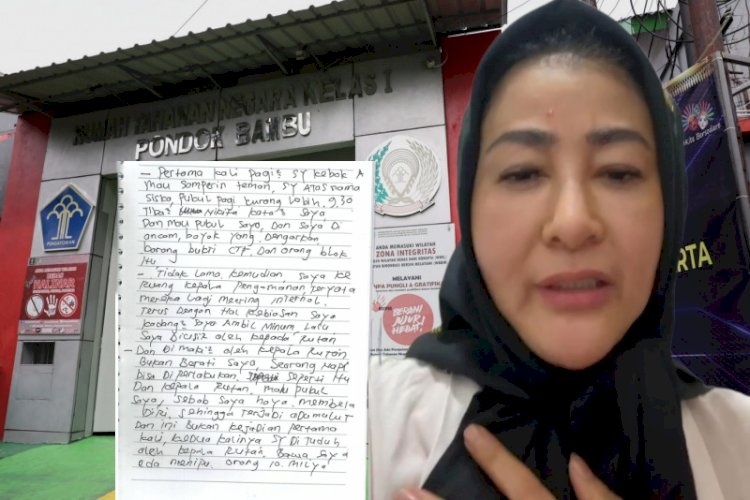 RUMAH TAHANAN NEGARA KELAS I
PONDOK BAMBU
PENGAYOMAN
HALINAR
ANDA MEMASUKI WILAYAH
ZONA INTEGRITAS
MELAYANI
PUNGLI & GRATIFIK
BERANI
JUJUR
HEBAT!
- Pertama kali pagi² sy kebok A
mau samperin teman, sy Atas nama
siska, pukul pagi kurang lebih, 9,30
Tiba² Nikita katai saya
Dan mau pukul saya, Dan saya Di
ancam, bayak yang Dengarkan
barang bukti CTF Dan orang blok
itu
- Tidak lama kemudian saya ke
ruang kepala Pengamanan, ternyata
mereka lagi meeting internal.
Terus Dengan Hal kebiasan saya
kadang² saya Ambil Minum, Lalu
saya Diusir oleh kepada Rutan
- Dan Di maki² oleh kepala Rutan
bukan berati saya seorang napi
bisa Di perlakukan, seperti itu
Dan kepala rutan mau pukul
saya, sebab saya hanya membela
Diri, sehingga terjadi adu mulut
Dan ini bukan kejadian pertama
kali, kedua kalinya sy Di Tuduh
oleh kepala Rutan, bawa saya
ada menipu orang 10. Milya